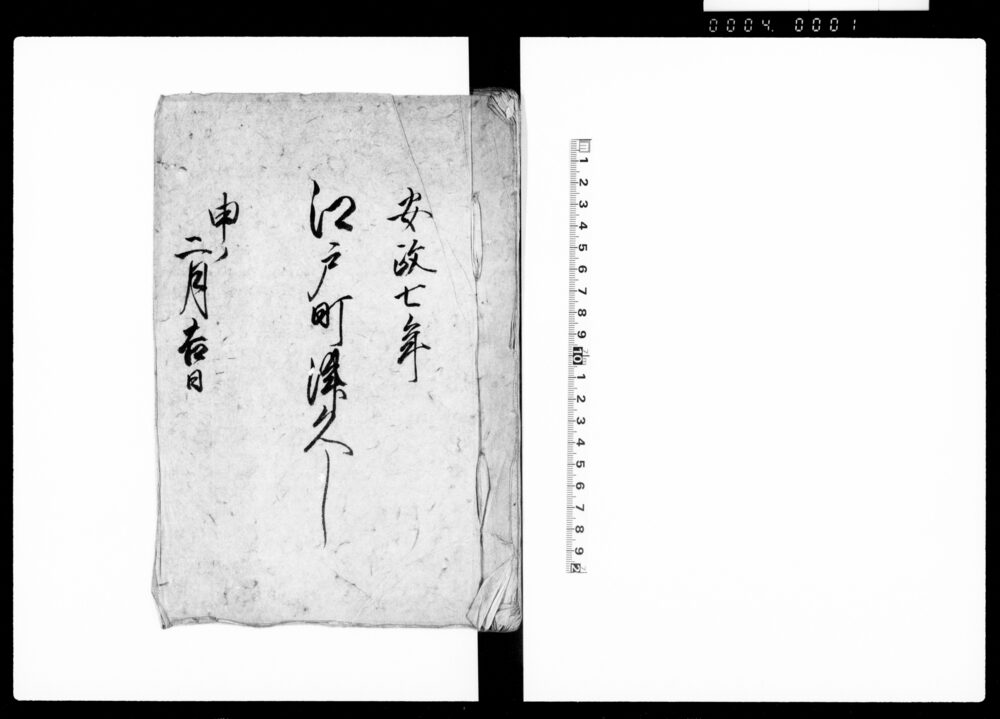 0004. 0001
安政七年
江戸町津久し
申ノ
二月吉日
1 2 3 4 5 6 7 8 9 10 1 2 3 4 5 6 7 8 9 2